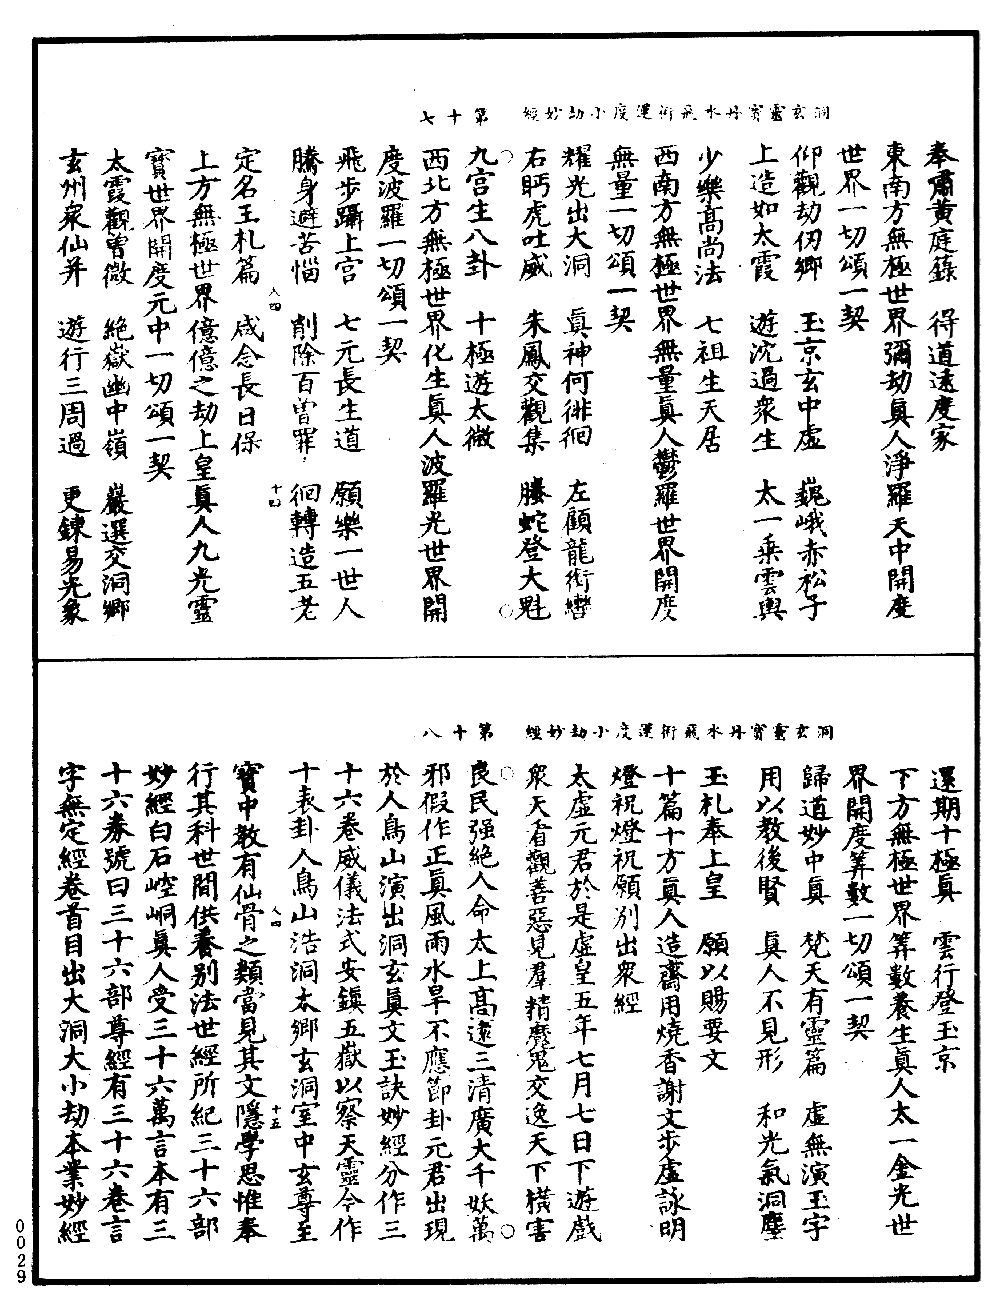 洞玄靈寶丹水飛術運度小劫妙經　第十七
奉肅黃庭籙　得道遠度家
東南方無極世界彌劫真人淨羅天中開度
世界一切頌一契
仰觀劫仞鄉　玉京玄中虛　巍峨赤松子
上造如太霞　遊沈過眾生　太一乘雲輿
少樂高尚法　七祖生天居
西南方無極世界無量真人鬱羅世界開度
無量一切頌一契
耀光出大洞　真神何徘徊　左顧龍銜轡
右眄虎吐威　朱鳳交觀集　螣蛇登大魁
九宮生八卦　十極遊太微
西北方無極世界化生真人波羅光世界開
度波羅一切頌一契
飛步躡上宮　七元長生道　願樂一世人
騰身避苦惱　削除百曾罪　徊轉造五老
定名王札篇　咸念長日保
上方無極世界億億之劫上皇真人九光靈
寶世界開度元中一切頌一契
太霞觀曾微　絕嶽幽中嶺　巖選交洞鄉
玄州眾仙并　遊行三周過　更鍊易光象
洞玄靈寶丹水飛術運度小劫妙經　第十八
還期十極真　雲行登玉京
下方無極世界筭數養生真人太一金光世
界開度筭數一切頌一契
歸道妙中真　梵天有靈篇　虛無演玉字
用以教後賢　真人不見形　和光氣洞塵
玉札奉上皇　願以賜要文
十篇十方真人造齋用燒香謝文步虛詠明
燈祝燈祝願別出眾經
太虛元君於是虛皇五年七月七日下遊戲
眾天看觀善惡見羣精魔鬼交逸天下橫害
良民強絕人命太上高遠三清廣大千妖萬
邪假作正真風雨水旱不應節卦元君出現
於人鳥山演出洞玄真文玉訣妙經分作三
十六卷威儀法式安鎮五嶽以察天靈令作
十表卦人鳥山浩洞太鄉玄洞室中玄尊至
寶中教有仙骨之類當見其文隱學思惟奉
行其科世間供養別法世經所紀三十六部
妙經白石崆峒真人受三十六萬言本有三
十六券號曰三十六部尊經有三十六卷言
字無定經卷首目出大洞大小劫本業妙經
0029